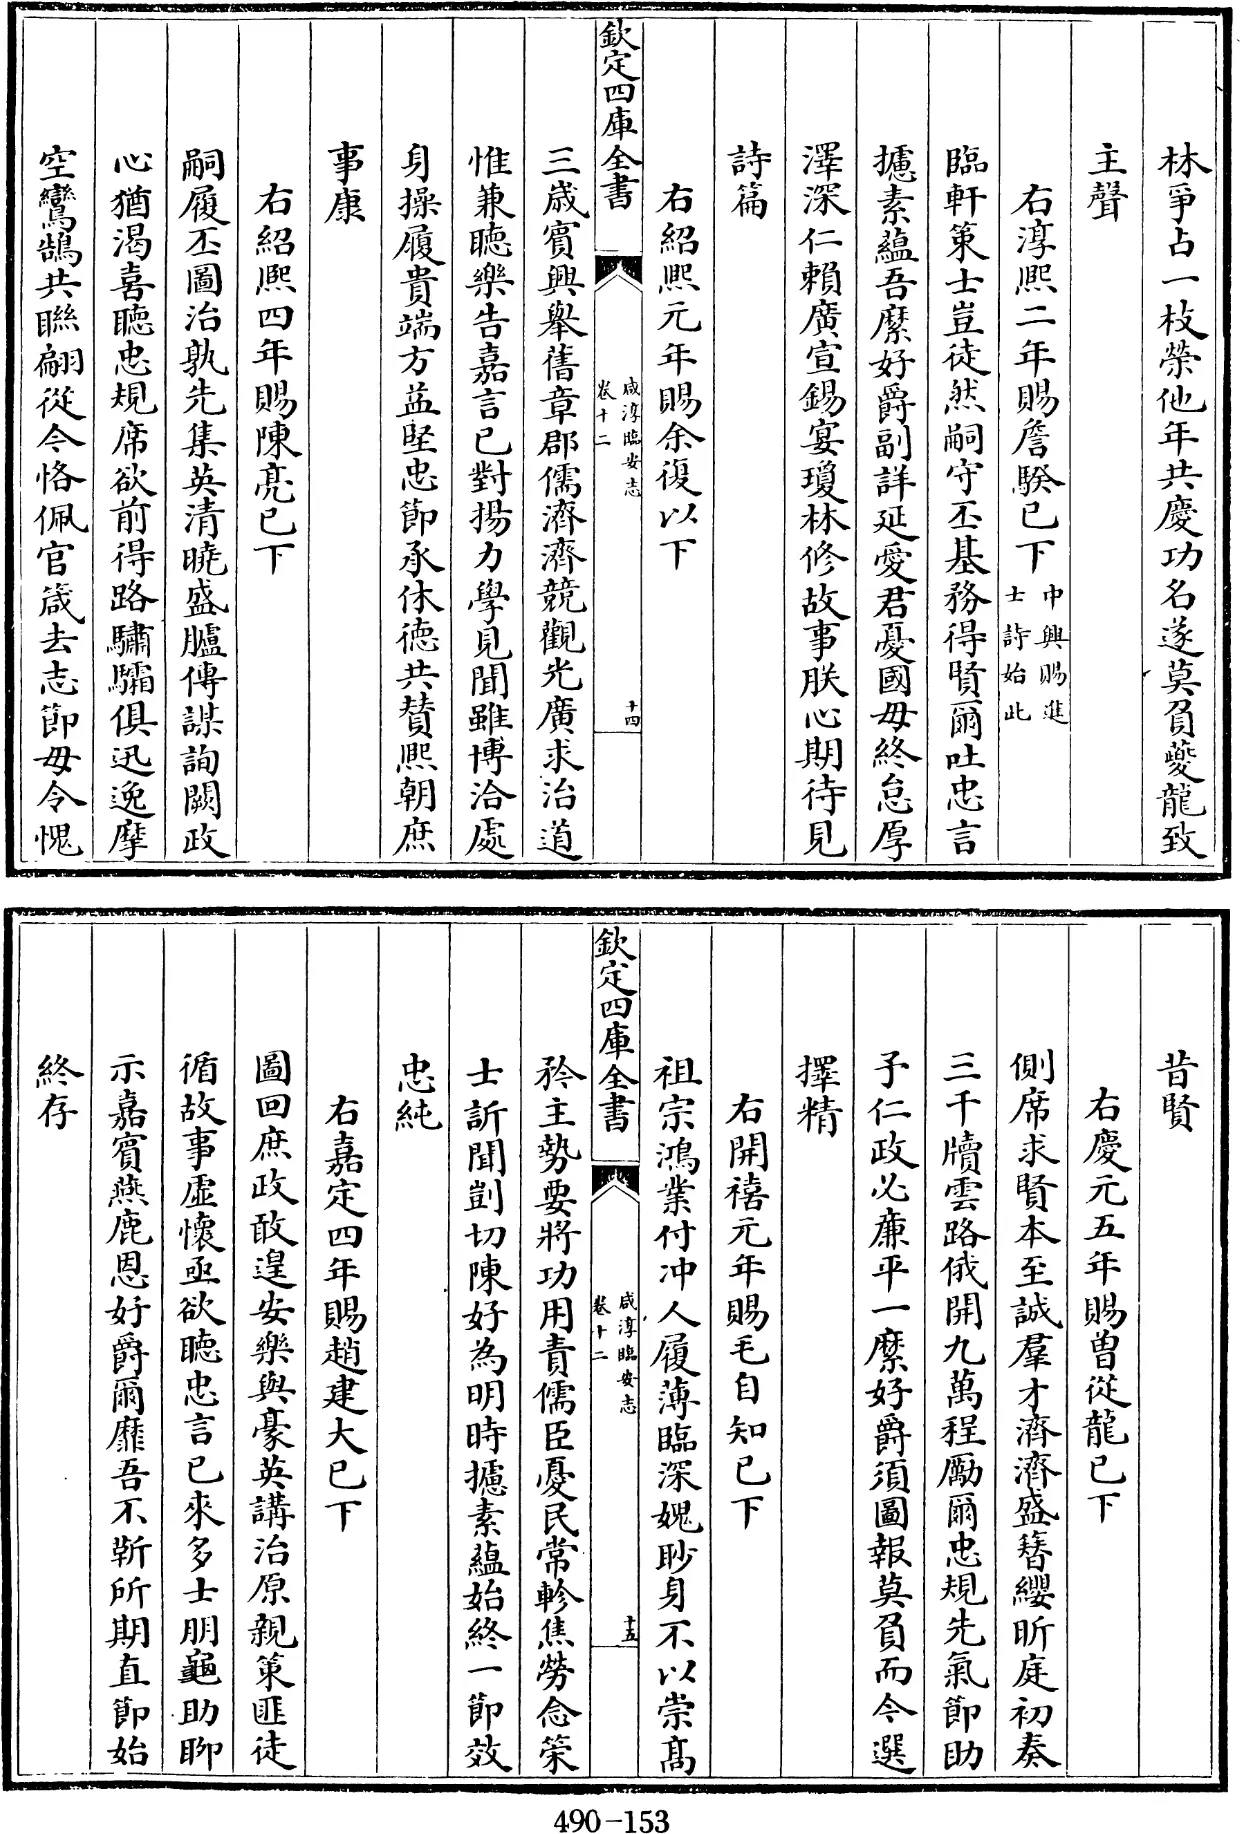 林爭占一枝榮他年共慶功名遂莫負夔龍致
主聲
右淳熙二年賜詹騤已下中興賜進
士詩始此
臨軒策士豈徒然嗣守丕基務得賢爾吐忠言
攄素蘊吾縻好爵副詳延愛君憂國毋終怠厚
澤深仁賴廣宣錫宴瓊林修故事朕心期待見
詩篇
右紹熙元年賜余復以下
欽定四庫全書
咸淳臨安志
卷十二
十四
三歲賓興舉舊章郡儒濟濟競觀光廣求治道
惟兼聽樂告嘉言已對揚力學見聞雖博洽處
身操履貴端方益堅忠節承休德共贊熙朝庶
事康
右紹熙四年賜陳亮已下
嗣履丕圖治孰先集英清曉盛臚傳謀詢闕政
心猶渴喜聽忠規席欲前得路驌驦俱迅逸摩
空鸞鵠共聯翩從今恪佩官箴去志節毋令愧
昔賢
右慶元五年賜曾從龍已下
側席求賢本至誠羣才濟濟盛簪纓昕庭初奏
三千牘雲路俄開九萬程勵爾忠規先氣節助
予仁政必亷平一縻好爵須圖報莫負而今選
擇精
右開禧元年賜毛自知已下
祖宗鴻業付冲人履薄臨深媿眇身不以崇髙
欽定四庫全書
咸淳臨安志
卷十二
十五
矜主勢要將功用責儒臣憂民常軫焦勞念策
士訢聞剴切陳好為明時攄素藴始終一節效
忠純
右嘉定四年賜趙建大已下
圖回庶政敢遑安樂與豪英講治原親策匪徒
循故事虛懷亟欲聽忠言已來多士朋龜助聊
示嘉賓燕鹿恩好爵爾靡吾不靳所期直節始
終存
490-153